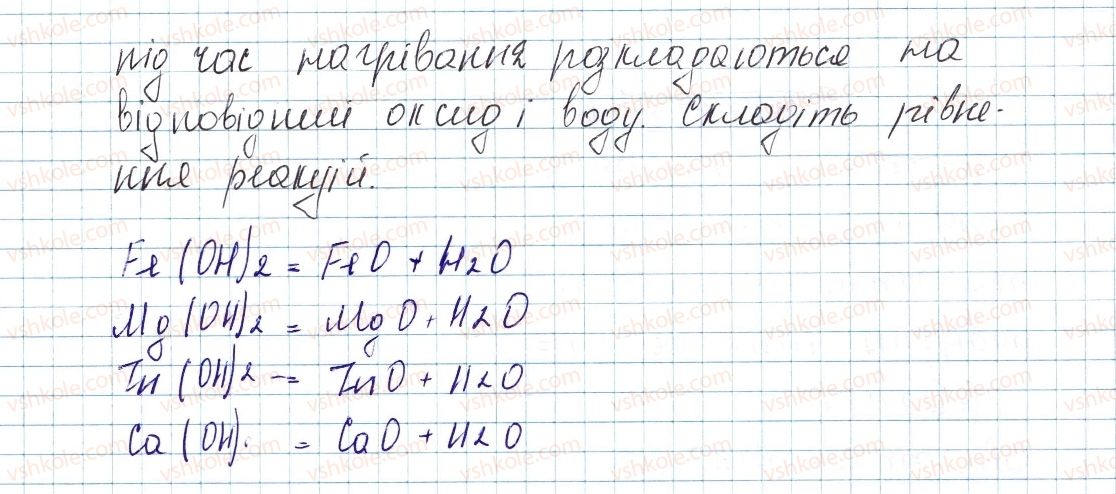 під час нагрівання розкладаються на
відповідний оксид і воду. Складіть рівне-
ння реакцій.
Fe(OH)2 = FeO + H2O
Mg(OH)2 = MgO + H2O
Zn(OH)2 = ZnO + H2O
Ca(OH). = CaO + H2O